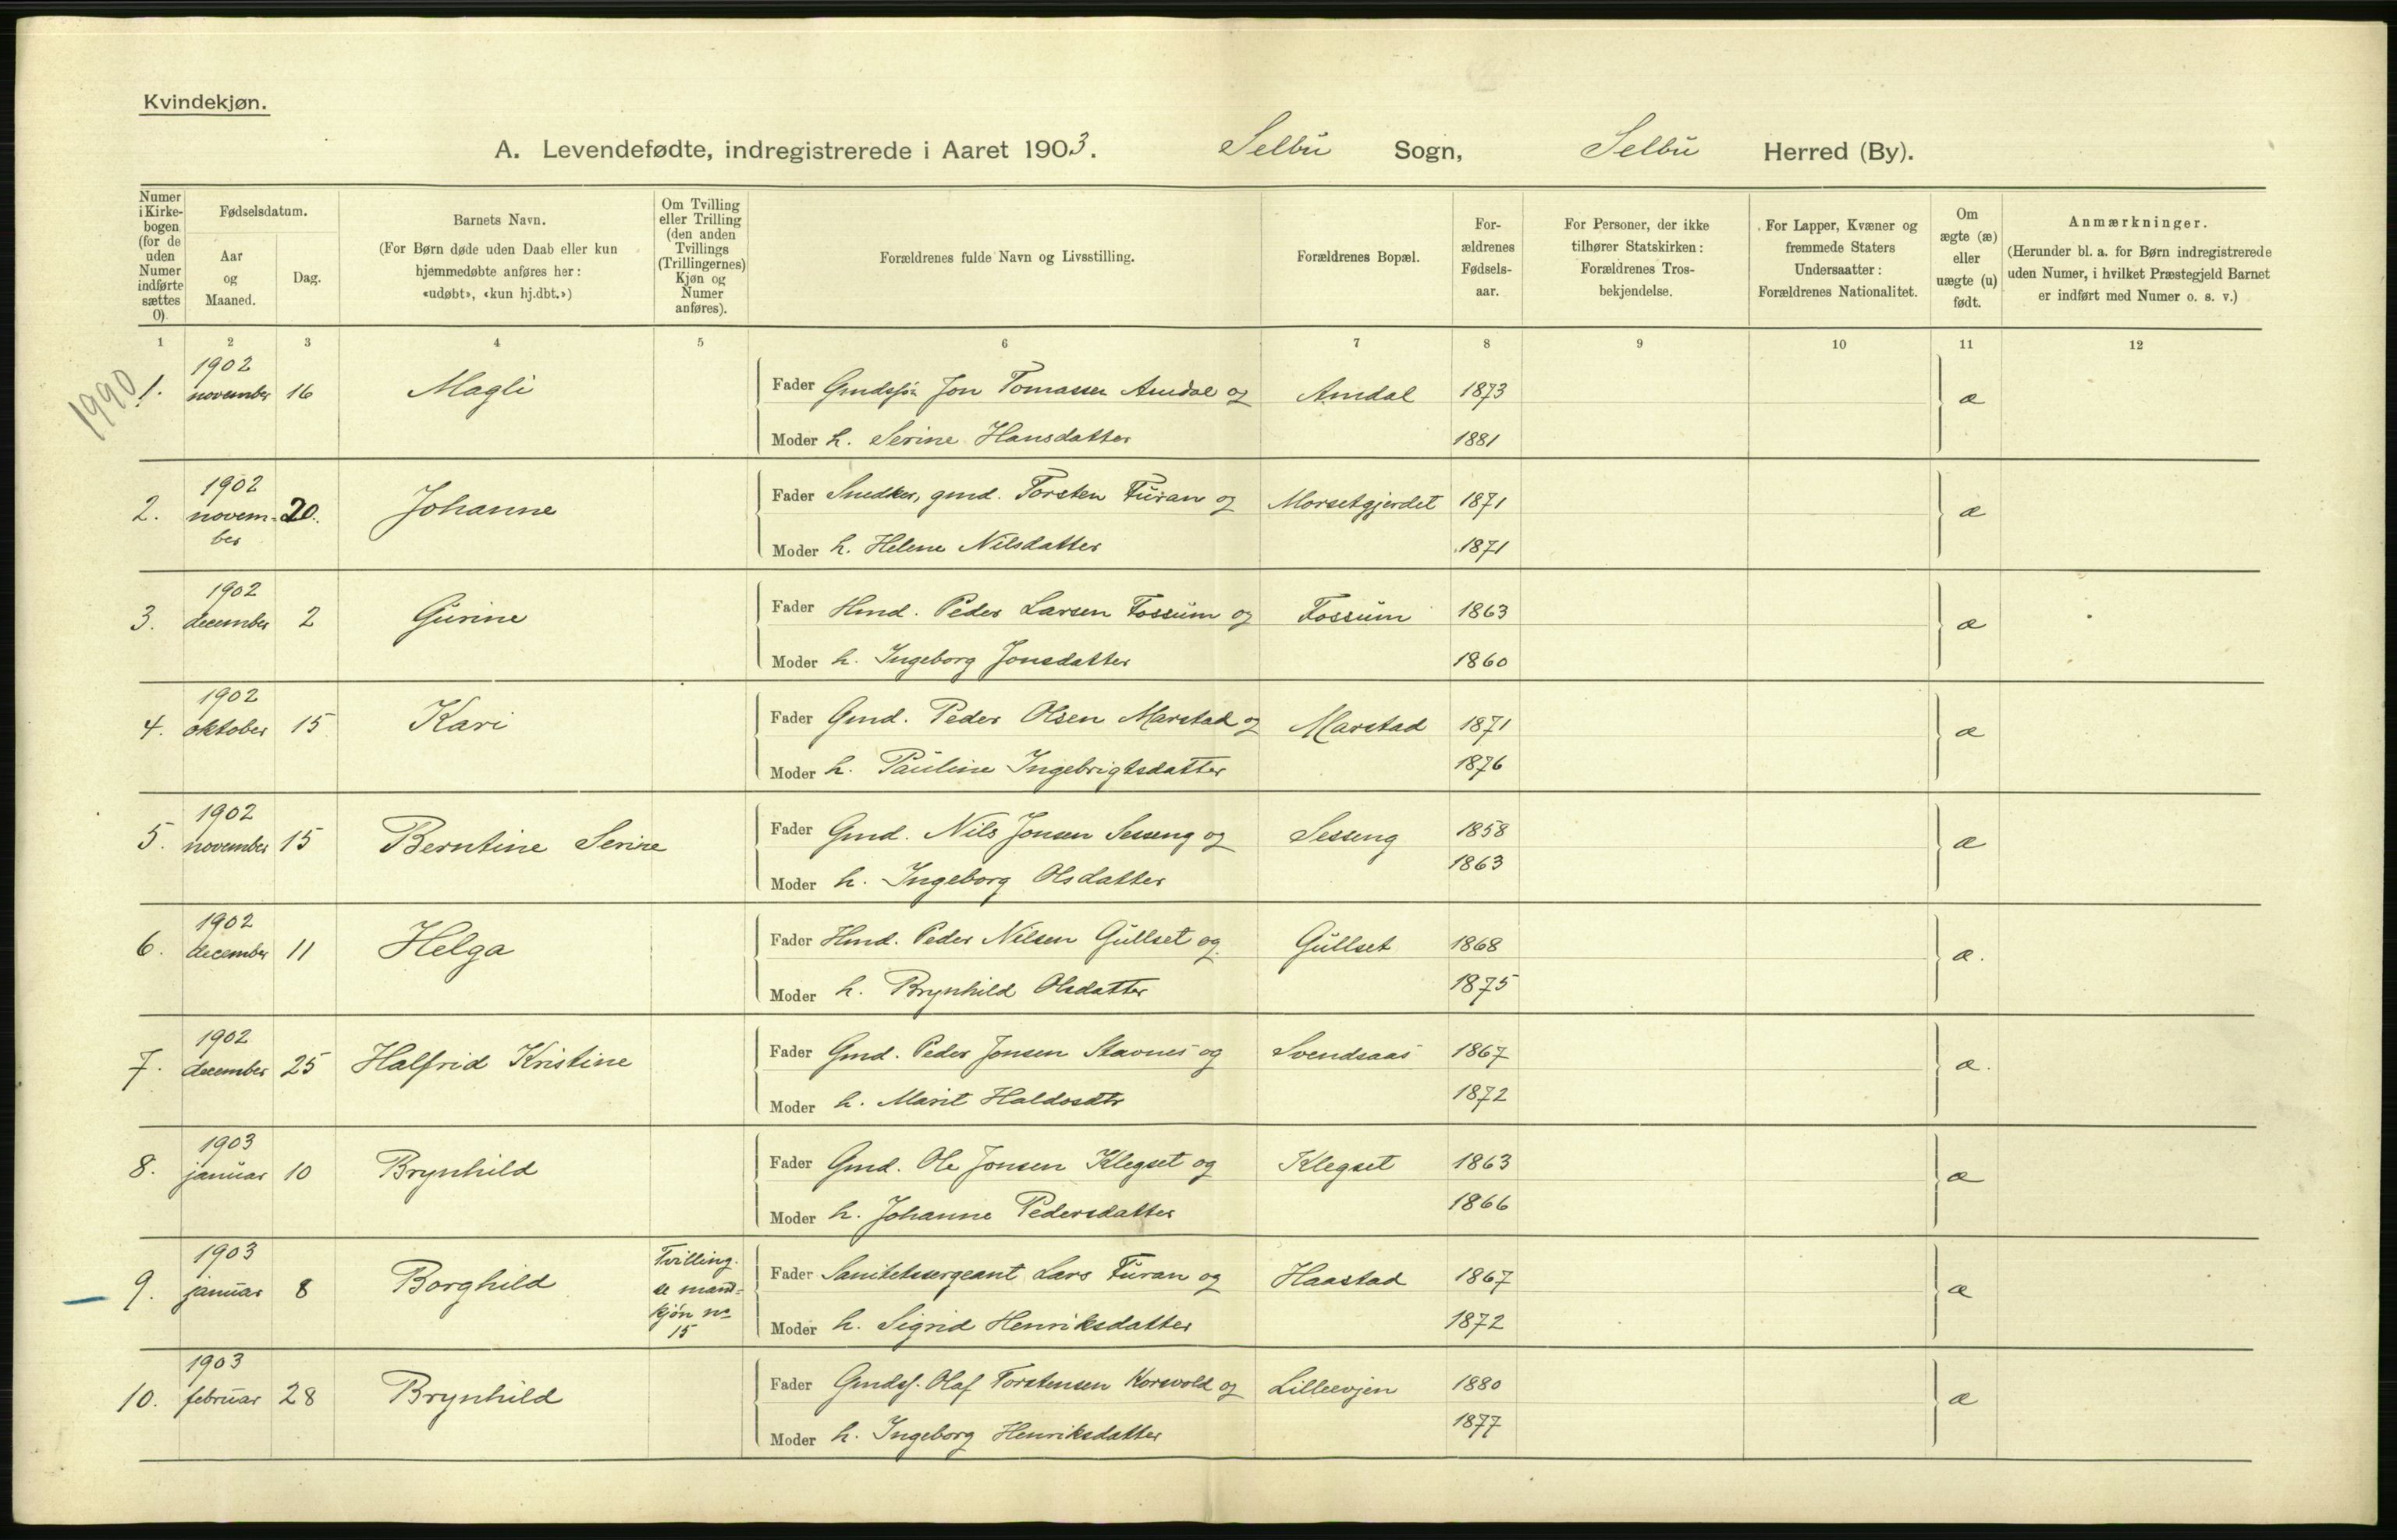 Kvindekjøn.
A. Levendefødte, indregistrerede i Aaret 1903. Selbu Sogn, Selbu Herred (By).
Numer i Kirke-bogen (for de uden Numer indførte sættes 0).
Fødselsdatum.
Aar og Maaned.
Dag.
Barnets Navn.
(For Børn døde uden Daab eller kun
hjemmedøbte anføres her:
«udøbt», «kun hj.dbt.»)
Om Tvilling
eller Trilling
(den anden
Tvillings
(Trillingernes)
Kjøn og
Numer
anføres).
Forældrenes fulde Navn og Livsstilling.
Forældrenes Bopæl.
For-
ældrenes
Fødsels-
aar.
For Personer, der ikke
tilhører Statskirken:
Forældrenes Tros-
bekjendelse.
For Lapper, Kvæner og
fremmede Staters
Undersaatter:
Forældrenes Nationalitet.
Om
ægte (æ)
eller
uægte (u)
født.
Anmærkninger.
(Herunder bl. a. for Børn indregistrerede
uden Numer, i hvilket Præstegjeld Barnet
er indført med Numer o. s. v.)
1 2 3 4 5 6 7 8 9 10 11 12
1990
1902
1. november 16 Magli Fader Gmdssøn Jon Tomassen Amdal og Amdal 1873 æ
Moder h. Serine Hansdatter 1881
1902
2. novem- 20. Johanne Fader Snedker, gmd. Torsten Furan og Morsetgjerdet 1871 æ
ber Moder h. Helene Nilsdatter 1871
1902
3. december 2 Gurine Fader Hmd. Peder Larsen Fossum og Fossum 1863 æ
Moder h. Ingeborg Jonsdatter 1860
1902
4. oktober 15 Kari Fader Gmd. Peder Olsen Marstad og Marstad 1871 æ
Moder h. Pauline Ingebrigtsdatter 1876
1902
5. november 15 Berntine Serine Fader Gmd. Nils Jonsen Sesseng og Sesseng 1858 æ
Moder h. Ingeborg Olsdatter 1863
1902
6. december 11 Helga Fader Hmd. Peder Nilsen Gullset og Gullset 1868 æ.
Moder h. Brynhild Olsdatter 1875
1902
7. december 25 Halfrid Kristine Fader Gmd. Peder Jonsen Stavnes og Svendsaas 1867 æ.
Moder h. Marit Haldosdtr 1872
1903
8. januar 10 Brynhild Fader Gmd. Ole Jonsen Klegset og Klegset 1863 æ
Moder h. Johanne Pedersdatter 1866
1903
9. januar 8 Borghild Tvilling. se mand=kjøn no 15 Fader Sanitetssergeant Lars Furan og Haastad 1867 æ
Moder h. Sigrid Henriksdatter 1872
1903
10. februar 28 Brynhild Fader Gmdss. Olaf Torstensen Korsvold og Lilleevjen 1880 æ
Moder h. Ingeborg Henriksdatter 1877